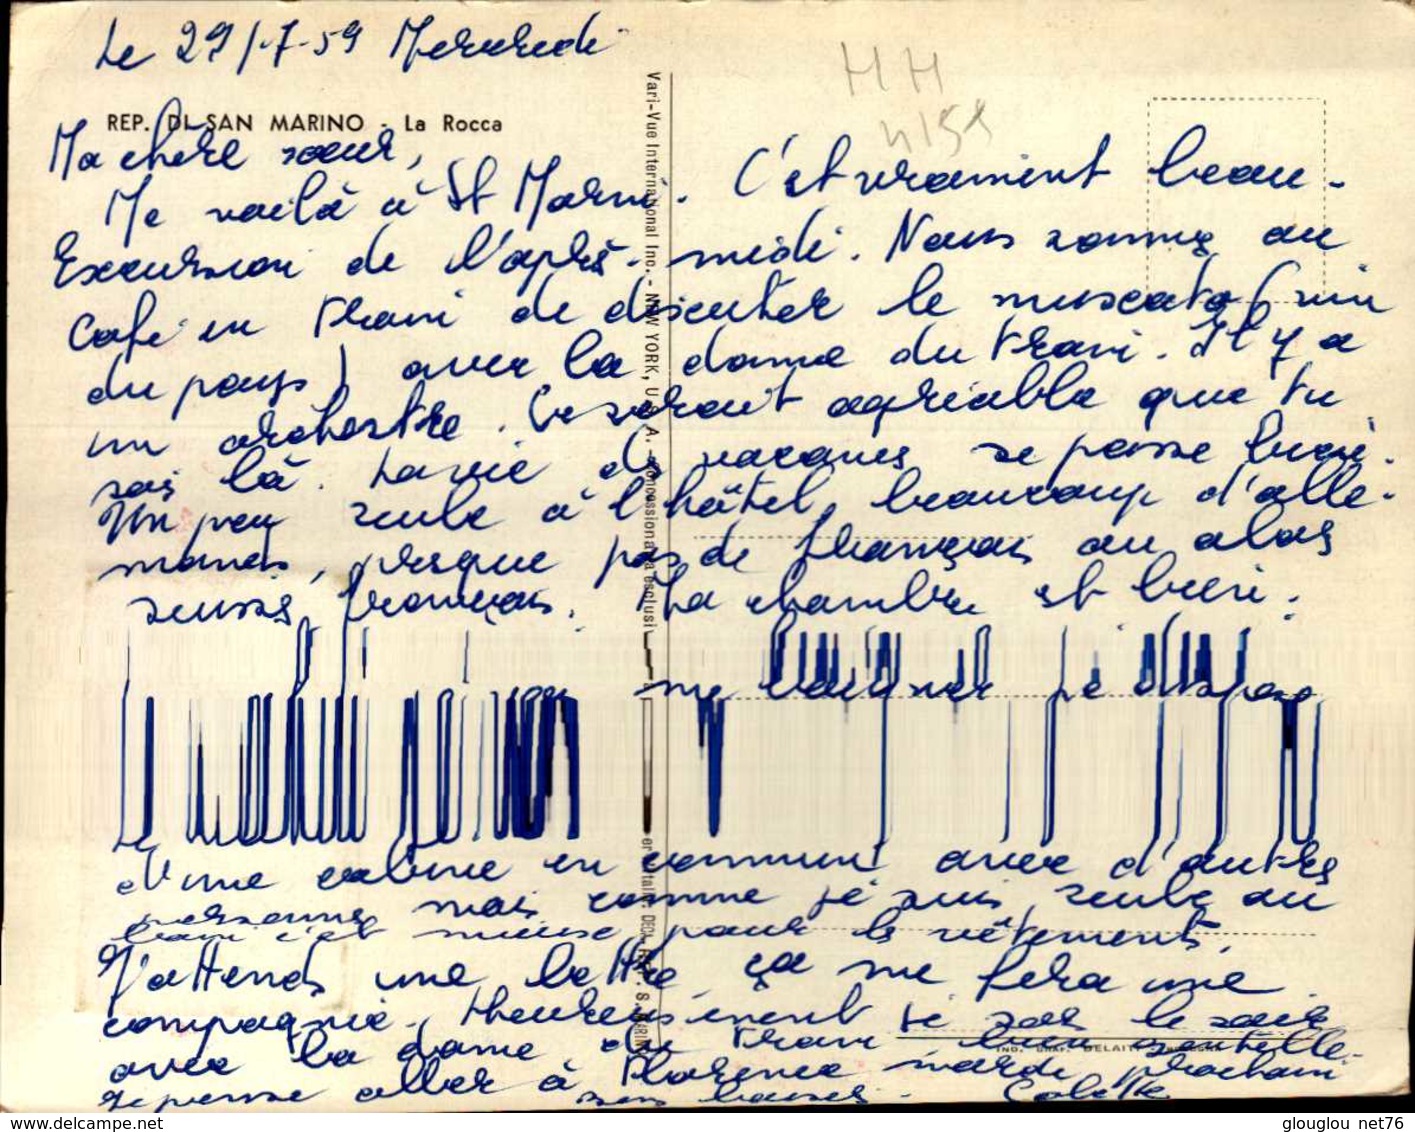 Le 29/-7-59 Mercredi
HH
4/59
REP. DI SAN MARINO - La Rocca
Ma chère sœur,
Me voilà à St Marin. C'est vraiment beau.
Excursion de l'après-midi. Nous sommes au
Café en train de discuter le muscato (vin
du pays) avec la dame du train. Il y a
un orchestre. Ce serait agréable que tu
sois là. La vie de vacances se passe bien.
Un peu seule à l'hôtel, beaucoup d'alle-
mands, presque pas de français ou alors
suisses français. Ma chambre est bien.
me baigner je dispose
d'une cabine en commun avec d'autres
personnes mais comme je suis seule au
train c'est mieux pour les vêtements.
J'attends une lettre, ça me fera une
compagnie. Heureusement je sors le soir
avec la dame du train bien gentille.
Je pense aller à Florence mardi prochain
bons baisers. Colette
Vari-Vue International Inc. - NEW YORK, U.S.A. - Concessionaria esclusi
IND. GRAF. DELAITI
glouglou net76